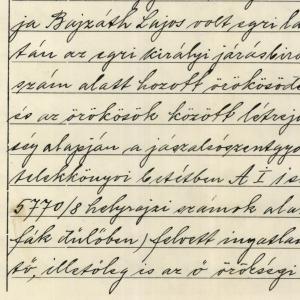 ja Bajzáth Lajos volt egri la
tán az egri királyi járásbiro
szám alatt hozott örökösöde
és az örökösök között létrejö
ség alapján a jászalsószentgyö
telekkönyvi betétben A I is
5770/8 helyrajzi számok ala
fák dülőben) felvett ingatlan
tő, illetőleg is az ő örökségi